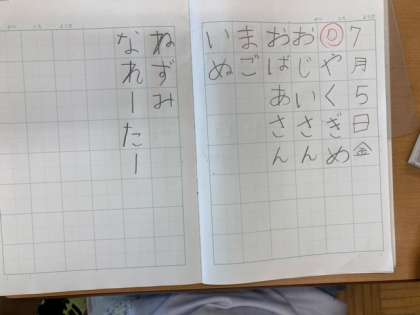 7月5日金
やくぎめ
おじいさん
おばあさん
まご
いぬ
ねずみ
なれーたー